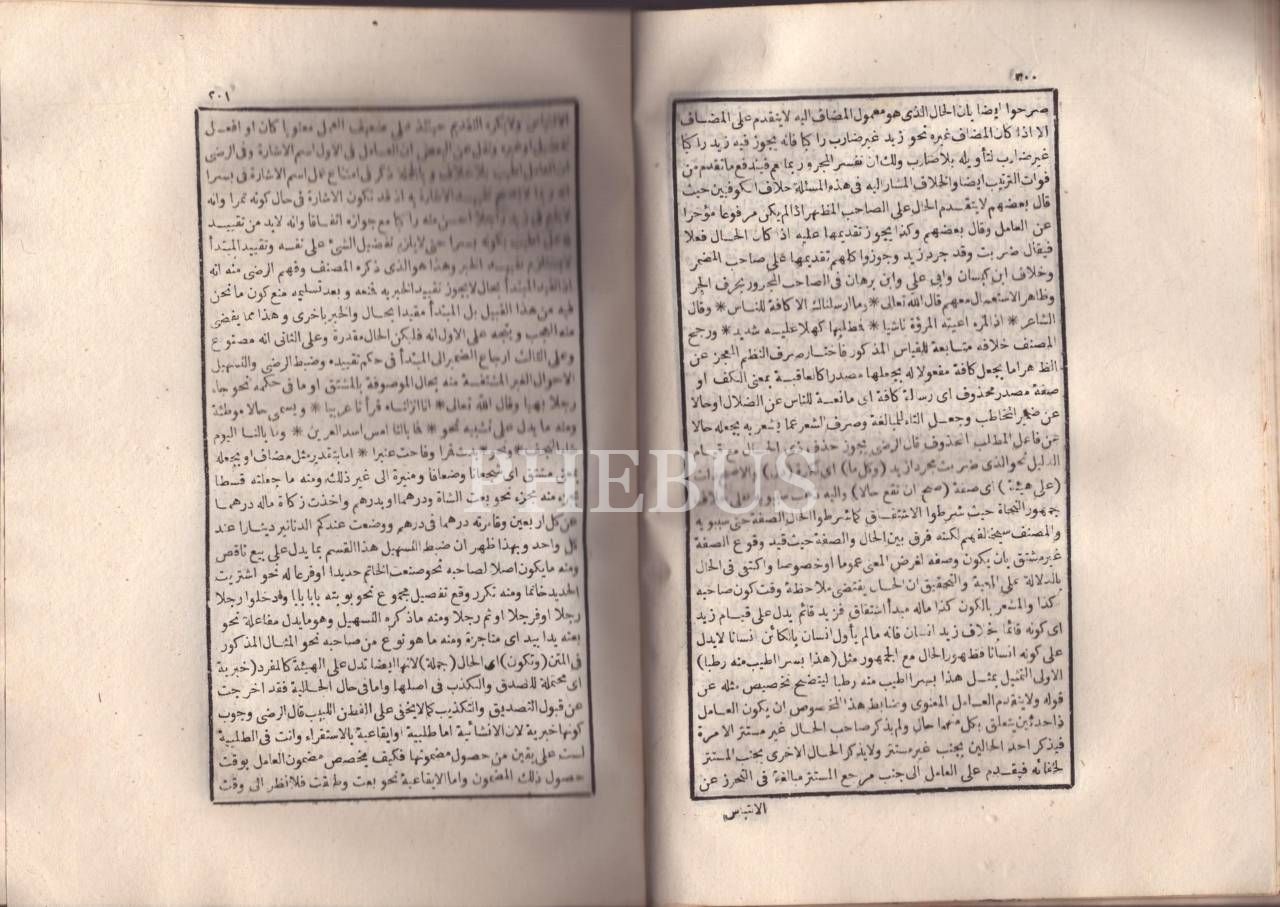 ٢٠٠
صرحوا ايضا بان الحال الذى هو معمول المضاف اليه لا يتقدم على المضاف
الا اذا كان المضاف غيره نحو زيد غير ضارب راكبا فانه يجوز فيه زيد راكبا
غير ضارب لتأويله بلا ضارب ولك ان تفسر المجرور بما هم فيندفع ما تقدم من
فوات الترتيب ايضا والخلاف المشار اليه فى هذه المسئلة خلاف الكوفيين حيث
قال بعضهم لا يتقدم الحال على الصاحب المظهر اذا لم يكن مرفوعا مؤخرا
عن العامل وقال بعضهم وكذا يجوز تقديمها عليه اذ كان الحال فعلا
فيقال ضربت وقد جرد زيد وجوزوا كلهم تقديمها على صاحب المضمر
وخلاف ابن كيسان وابى على وابن برهان فى الصاحب المجرور بحرف الجر
وظاهر الاستعمال معهم قال الله تعالى * وما ارسلناك الا كافة للناس * وقال
الشاعر * اذا المرء اعيته المروّة ناشيا * فمطلبها كهلا عليه شديد * ورجح
المصنف خلافه متابعة للقياس المذكور فاختار صرف النظم المعجز عن
الظاهر اما بجعل كافة مفعولا له بجعلها مصدرا كالعاقبة بمعنى الكف او
صفة مصدر محذوف اى رسالة كافة اى مانعة للناس عن الضلال او حالا
عن ضمير المخاطب وجعل التاء للمبالغة وصرف الشعر عما يشعر به بجعله حالا
عن فاعل المطلب المحذوف قال الرضى يجوز حذف ذى الحال مع قيام
الدليل نحو الذى ضربت مجردا زيد (وكل ما)
(على هيئة) اى صفة (صح ان تقع حالا)
جمهور النحاة حيث شرطوا الاشتقاق كما شرطوا الحال الصفة حتى سيبويه
والمصنف سيخالفهم لكنه فرق بين الحال والصفة حيث قيد وقوع الصفة
غير مشتق بان يكون وصفه لغرض المعنى عموما او خصوصا واكتفى فى الحال
بالدلالة على الهيئة والتحقيق ان الحال يقتضى ملاحظة وقت كون صاحبه
كذا والمشعر بالكون كذا ماله مبدأ اشتقاق فزيد قائم يدل على قيام زيد
اى كونه قائما خلاف زيد انسان فانه مالم يأول انسان بالكائن انسانا لا يدل
على كونه انسانا فظهور الحال مع الجمهور مثل (هذا بسرا اطيب منه رطبا)
الاولى التمثيل بمثل هذا بسرا اطيب منه رطبا ليتضح تخصيص مثله عن
قوله ولا يتقدم العامل المعنوى وضابط هذا المخصوص ان يكون العامل
ذا حدثين يتعلق بكل منهما حال ولم يذكر صاحب الحال غير مستتر الا مرة
فيذكر احد الحالين بجنب غير مستتر ولا يذكر الحال الاخرى بجنب المستتر
لخفائه فيقدم على العامل الى جنب مرجع المستتر مبالغة فى التحرز عن
الالتباس
٢٠١
الالتباس ولا يكره التقديم حينئذ على ضعيف العمل معنويا كان او افعل
ونقل عن البعض ان العامل فى الاول اسم الاشارة وفى الرضى
ان العامل اطيب بلا خلاف وبالجملة ذكر فى امتناع عمل اسم الاشارة فى بسرا
تقييد الاشارة به اذ قد تكون الاشارة فى حال كونه تمرا وانه
راجلا احسن منه راكبا مع جوازه اتفاقا وانه لابد من تقييد
اطيب بكونه بسرا حتى لا يلزم تفضيل الشئ على نفسه وتقييد المبتدأ
الخبر وهذا هو الذى ذكره المصنف وفهم الرضى منه انه
المبتدأ بحال لا يجوز تقييد الخبر به فمنعه وبعد تسليمه منع كون ما نحن
فيه من هذا القبيل بل المبتدأ مقيدا بحال والخبر باخرى وهذا مما يفضى
منه العجب ويتجه على الاول انه فلتكن الحال مقدرة وعلى الثانى انه مصنوع
وعلى الثالث ارجاع الضمير الى المبتدأ فى حكم تقييده وضبط الرضى والتسهيل
الاحوال الغير المشتقة منه بحال الموصوفة بالمشتق او ما فى حكمه نحو جاء
رجلا بهيا وقال الله تعالى * انا انزلناه قرأنا عربيا * ويسمى حالا موطئة
ومنه ما يدل على تشبيه نحو * فما بالنا امس اسد العرين * وما بالنا اليوم
شاء النجف * وفاحت عنبرا * اما بتقدير مثل مضاف او بجعله
مشتق اى شجعانا وضعافا ومنيرة الى غير ذلك ومنه ما جعلته قسطا
ومنه تجزء نحو بعت الشاة ودرهما او بدرهم واخذت زكاة ماله درهما
عن كل اربعين وقامرته درهما فى درهم ووضعت عندكم الدنانير دينارا عند
كل واحد وبهذا ظهر ان ضبط التسهيل هذا القسم بما يدل على بيع ناقص
ومنه ما يكون اصلا لصاحبه نحو صنعت الخاتم حديدا او فرعا له نحو اشتريت
الحديد خاتما ومنه تكرر وقع تفصيل مجموع نحو بوبته بابا بابا وادخلوا رجلا
رجلا او فرجلا او ثم رجلا ومنه ما ذكره التسهيل وهو ما يدل مفاعلة نحو
بعته يدا بيد اى مناجزة ومنه ما هو نوع من صاحبه نحو المثال المذكور
فى المتن (وتكون) اى الحال (جملة) لانها ايضا تدل على الهيئة كالمفرد (خبرية
اى محتملة للصدق والكذب فى اصلها واما فى حال الحالية فقد اخرجت
عن قبول التصديق والتكذيب كما لا يخفى على الفطن اللبيب قال الرضى وجوب
كونها خبرية لان الانشائية اما طلبية او ايقاعية بالاستقراء وانت فى الطلبية
لست على يقين من حصول مضمونها فكيف يخصص مضمون العامل بوقت
حصول ذلك المضمون واما الايقاعية نحو بعت وطلقت فلا نظر الى وقت
PHEBUS